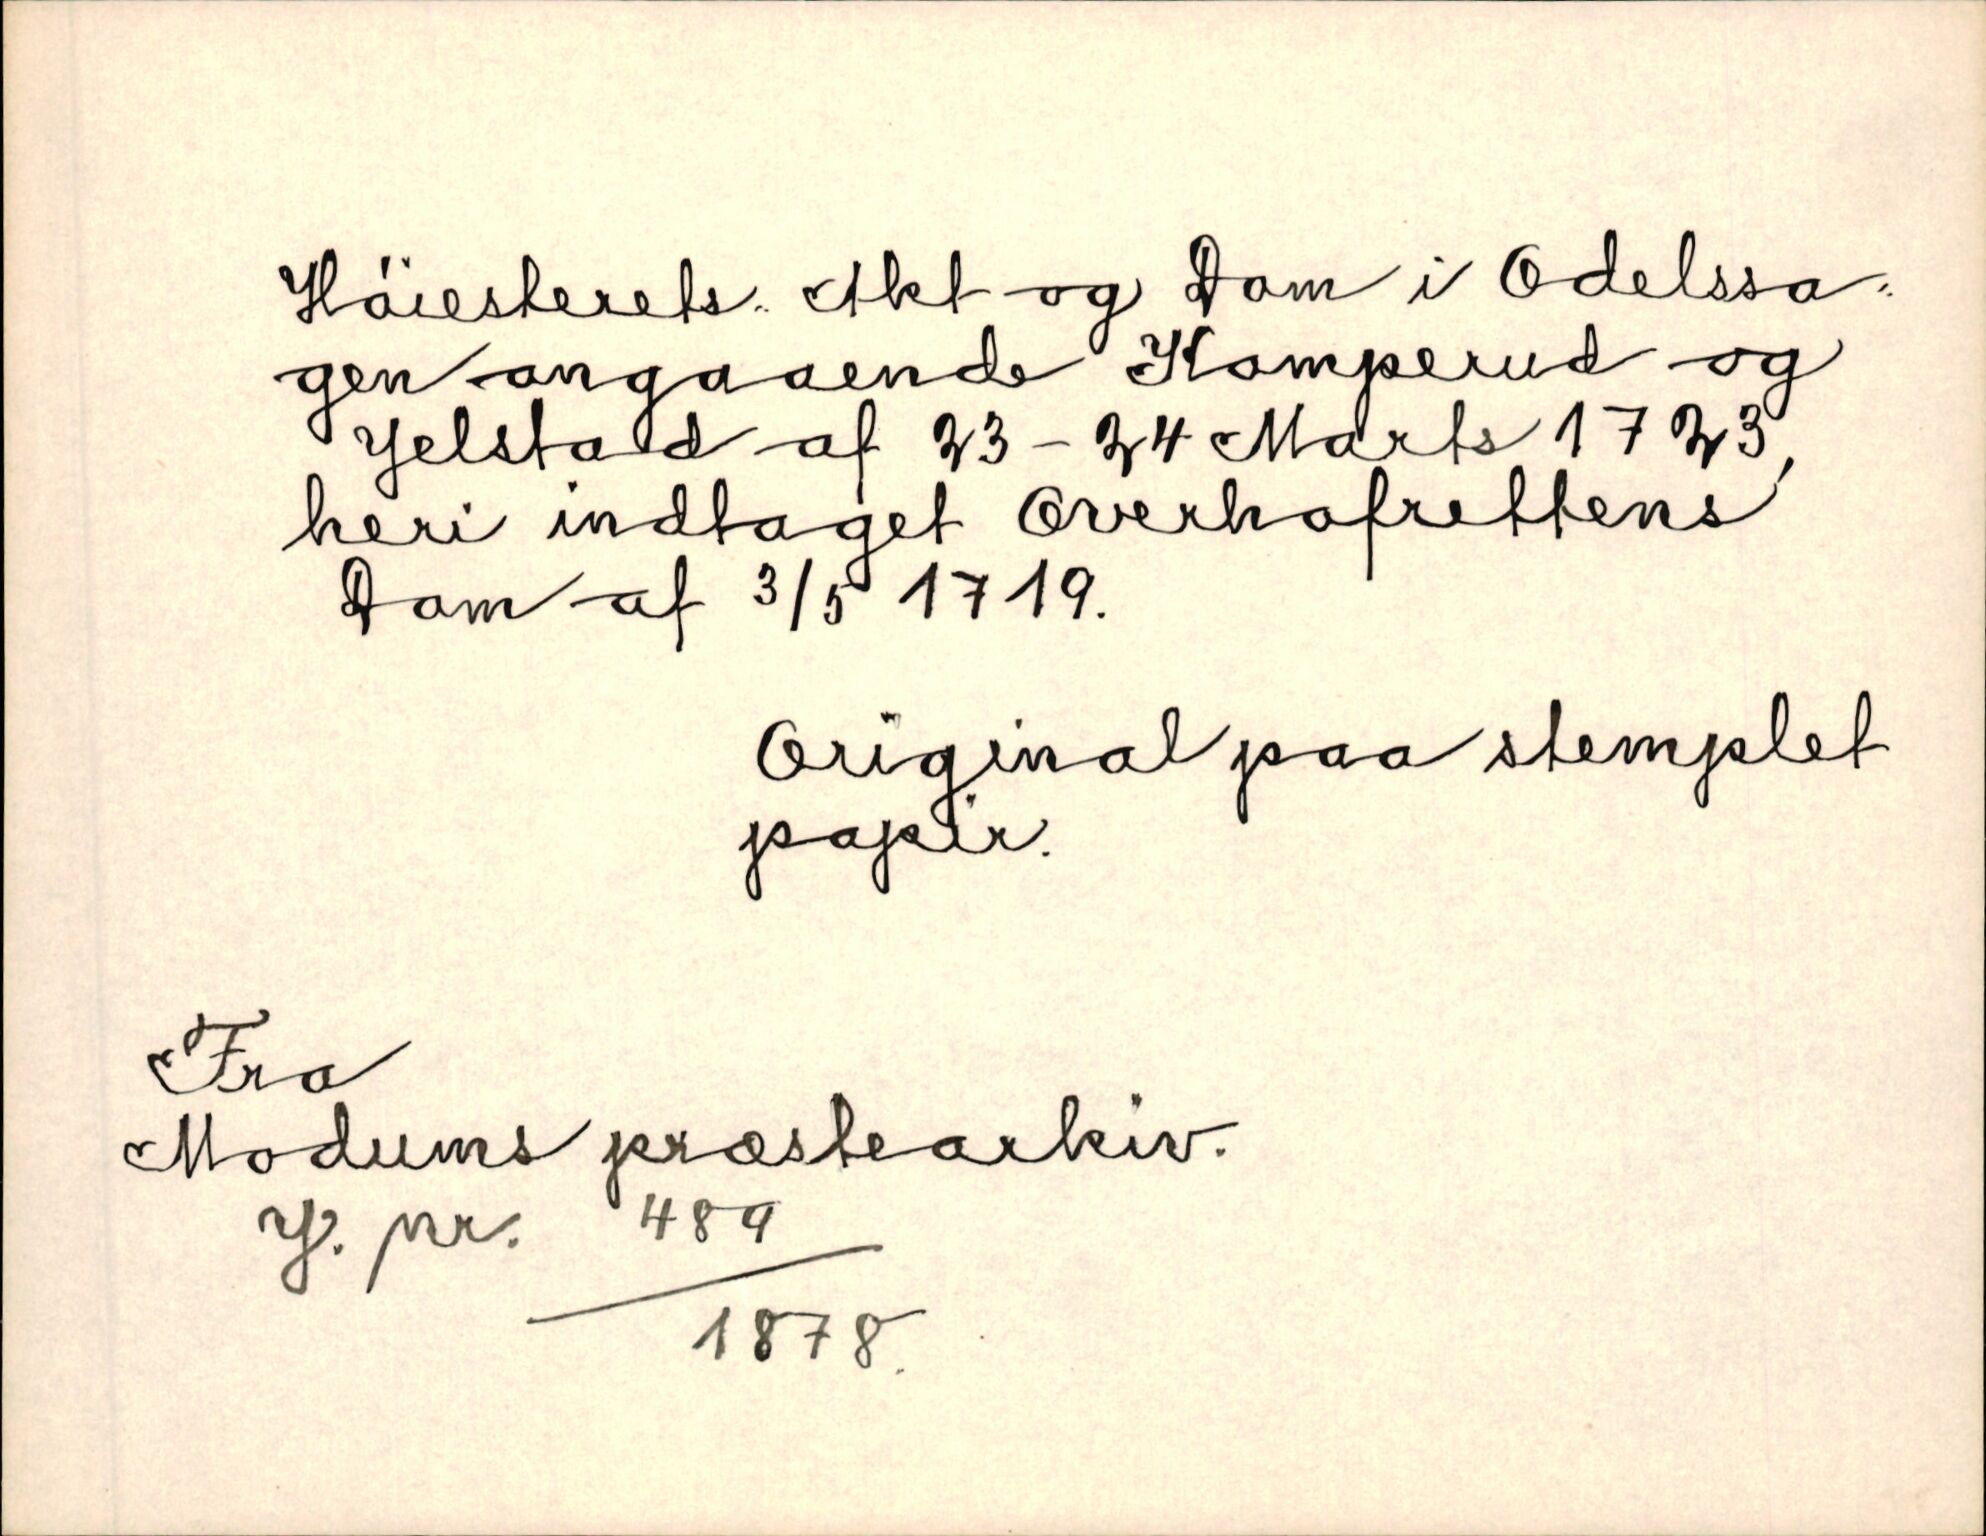 Höiesterets. Akt og Dom i Odelssa-
gen angaaende Komperud og
Yelstad af 23-24 Marts 1723,
heri indtaget Overhofrettens
Dom af 3/5 1719.
Original paa stemplet
papir.
Fra
Modums præstearkiv.
Y. pr. 489
1878.